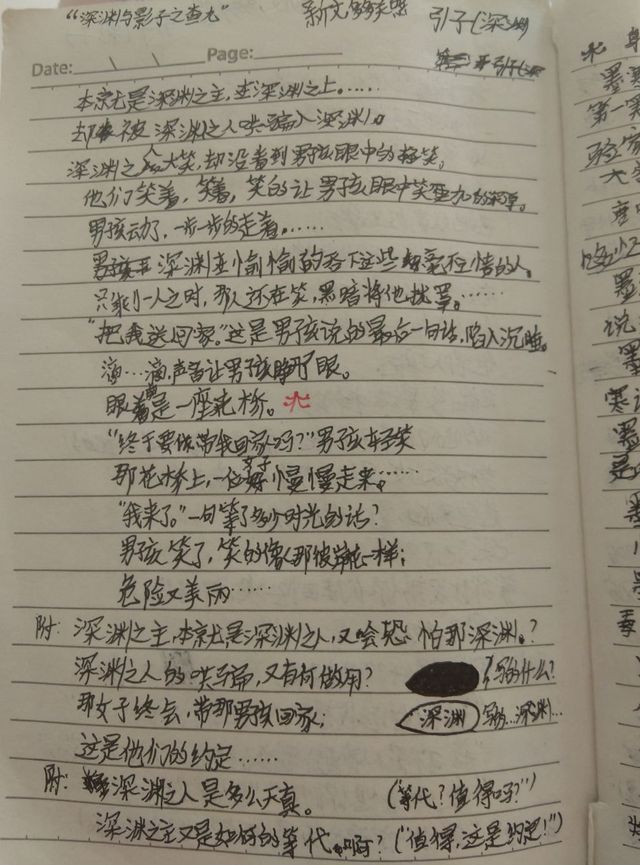 “深渊与影子之查九”
新文梦联盟
引子(深渊)
Date:
Page:
引子
本就是深渊之主，坐深渊之上。……
却被深渊之人哄骗入深渊。
深渊之人大笑，却没看到男孩眼中的轻笑。
他们笑着，笑着，笑的让男孩眼中笑更加的深。
男孩动了，一步一步的走着。……
深渊在愉愉的吞下这些毫不知情的人。
只剩一人之时，那人还在笑，黑暗将他拢罩。……
“把我送回家。”这是男孩说的最后一句话，陷入沉睡。
滴…滴，声音让男孩睁了眼。
眼着是一座花桥。
“终于要你带我回家吗？”男孩轻笑
那花桥上，一位女子慢慢走来。……
“我来了。”一句等了多少时光的话？
男孩笑了，笑的像那彼岸花一样；
危险又美丽……
附：深渊之主，本就是深渊之人，又会恐怕那深渊。？
深渊之人的哄骗，又有何做用？
写的什么？
那女子终会，带那男孩回家；
深渊
写的…深渊…
这是他们的约定……
附：深渊之人是多么天真。
(等代？值得吗？”)
深渊之主又是如何的等代。啊？
(“值得，这是约定！”)
墨
第一
大
墨
说
墨
寒
墨
是
季